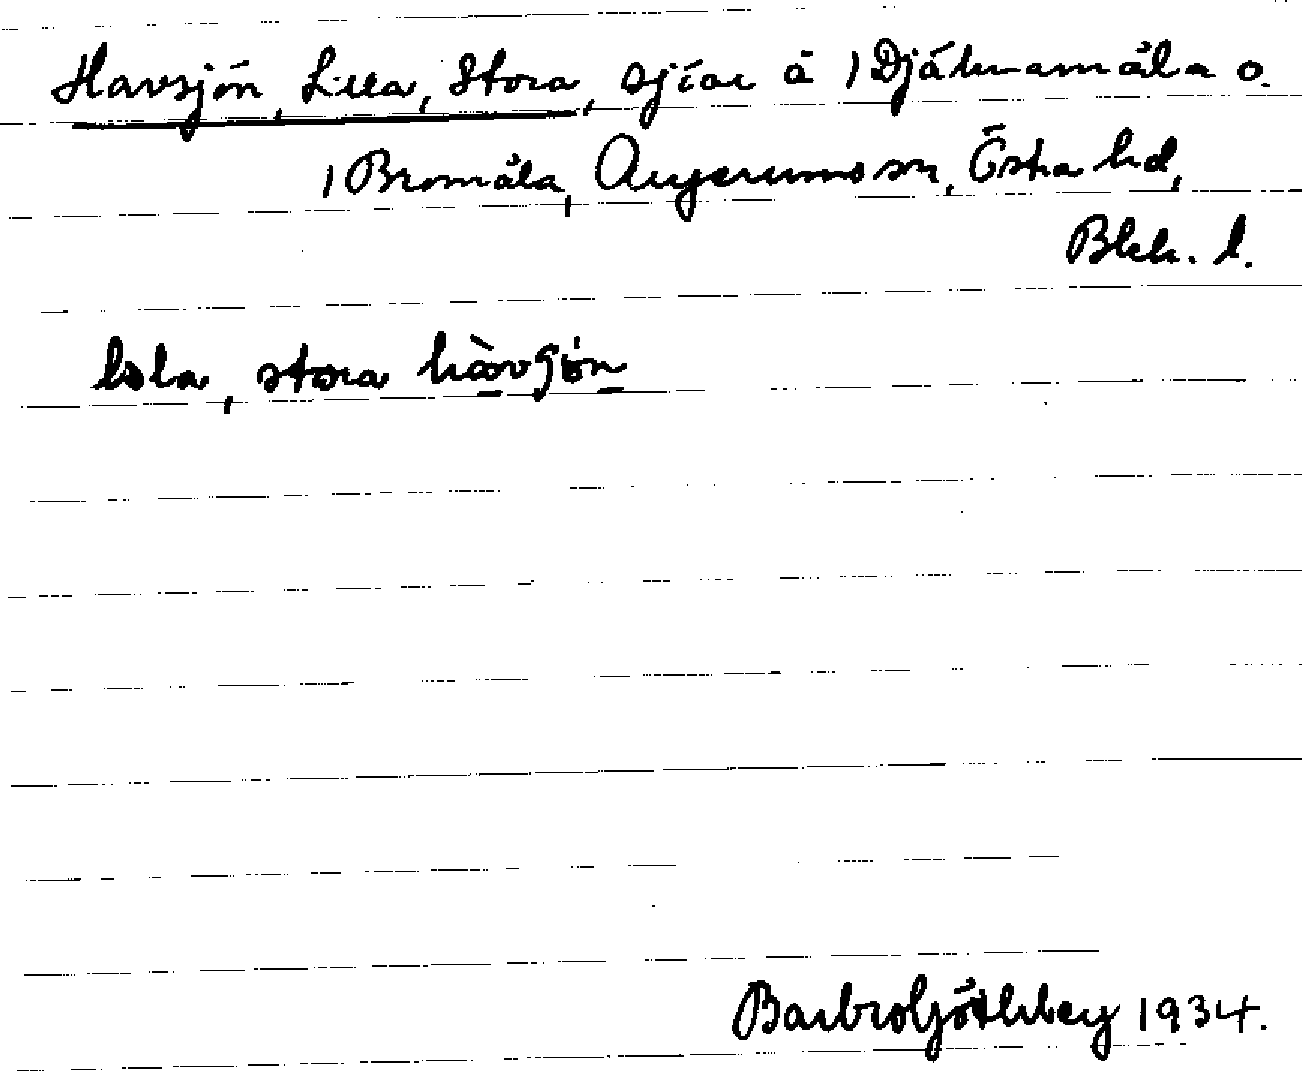 Havsjön, Lilla, Stora, sjöar å 1 Djäknamåla o.
1 Bromåla, Augerums sn, Östra hd,
Blek. l.
lɘla, stora hàvʃön
Barbro Göthberg 1934.